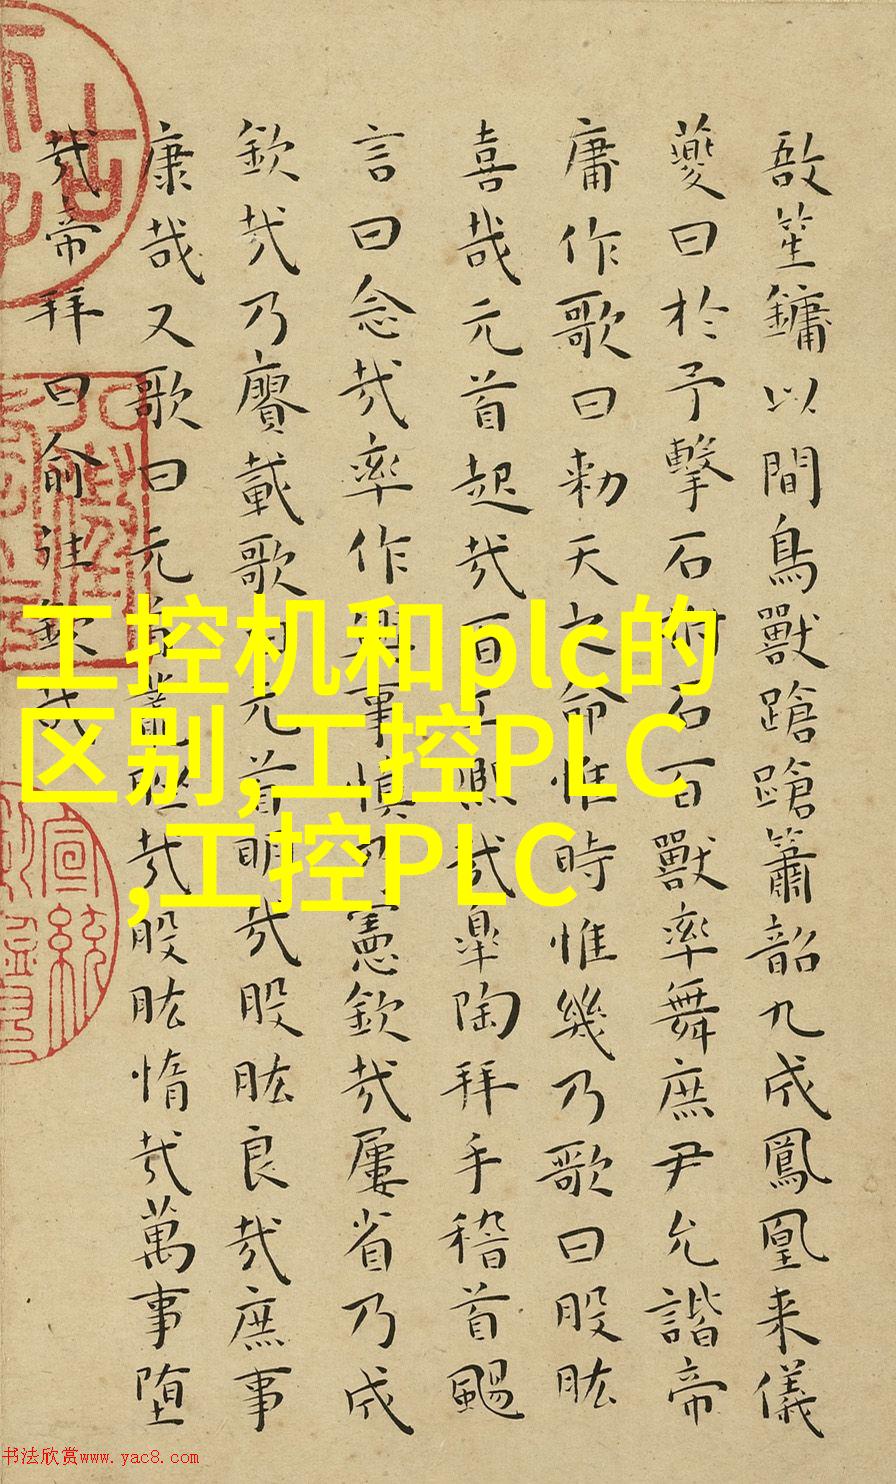 敔笙鏞以間鳥獸蹌蹌簫韶九成鳳凰来儀
夔曰於予擊石拊石百獸率舞庶尹允諧帝
庸作歌曰勑天之命惟時惟幾乃歌曰股肱
喜哉元首起哉百工熙哉皐陶拜手稽首颺
言曰念哉率作興事慎乃憲欽哉屢省乃成
欽哉乃賡載歌曰元首明哉股肱良哉庶事
康哉又歌曰元首叢脞哉股肱惰哉萬事堕
哉帝拜曰俞往欽哉
工控机和plc的
区别,工控PLC
,工控PLC
宣統
书法欣赏www.yac8.com